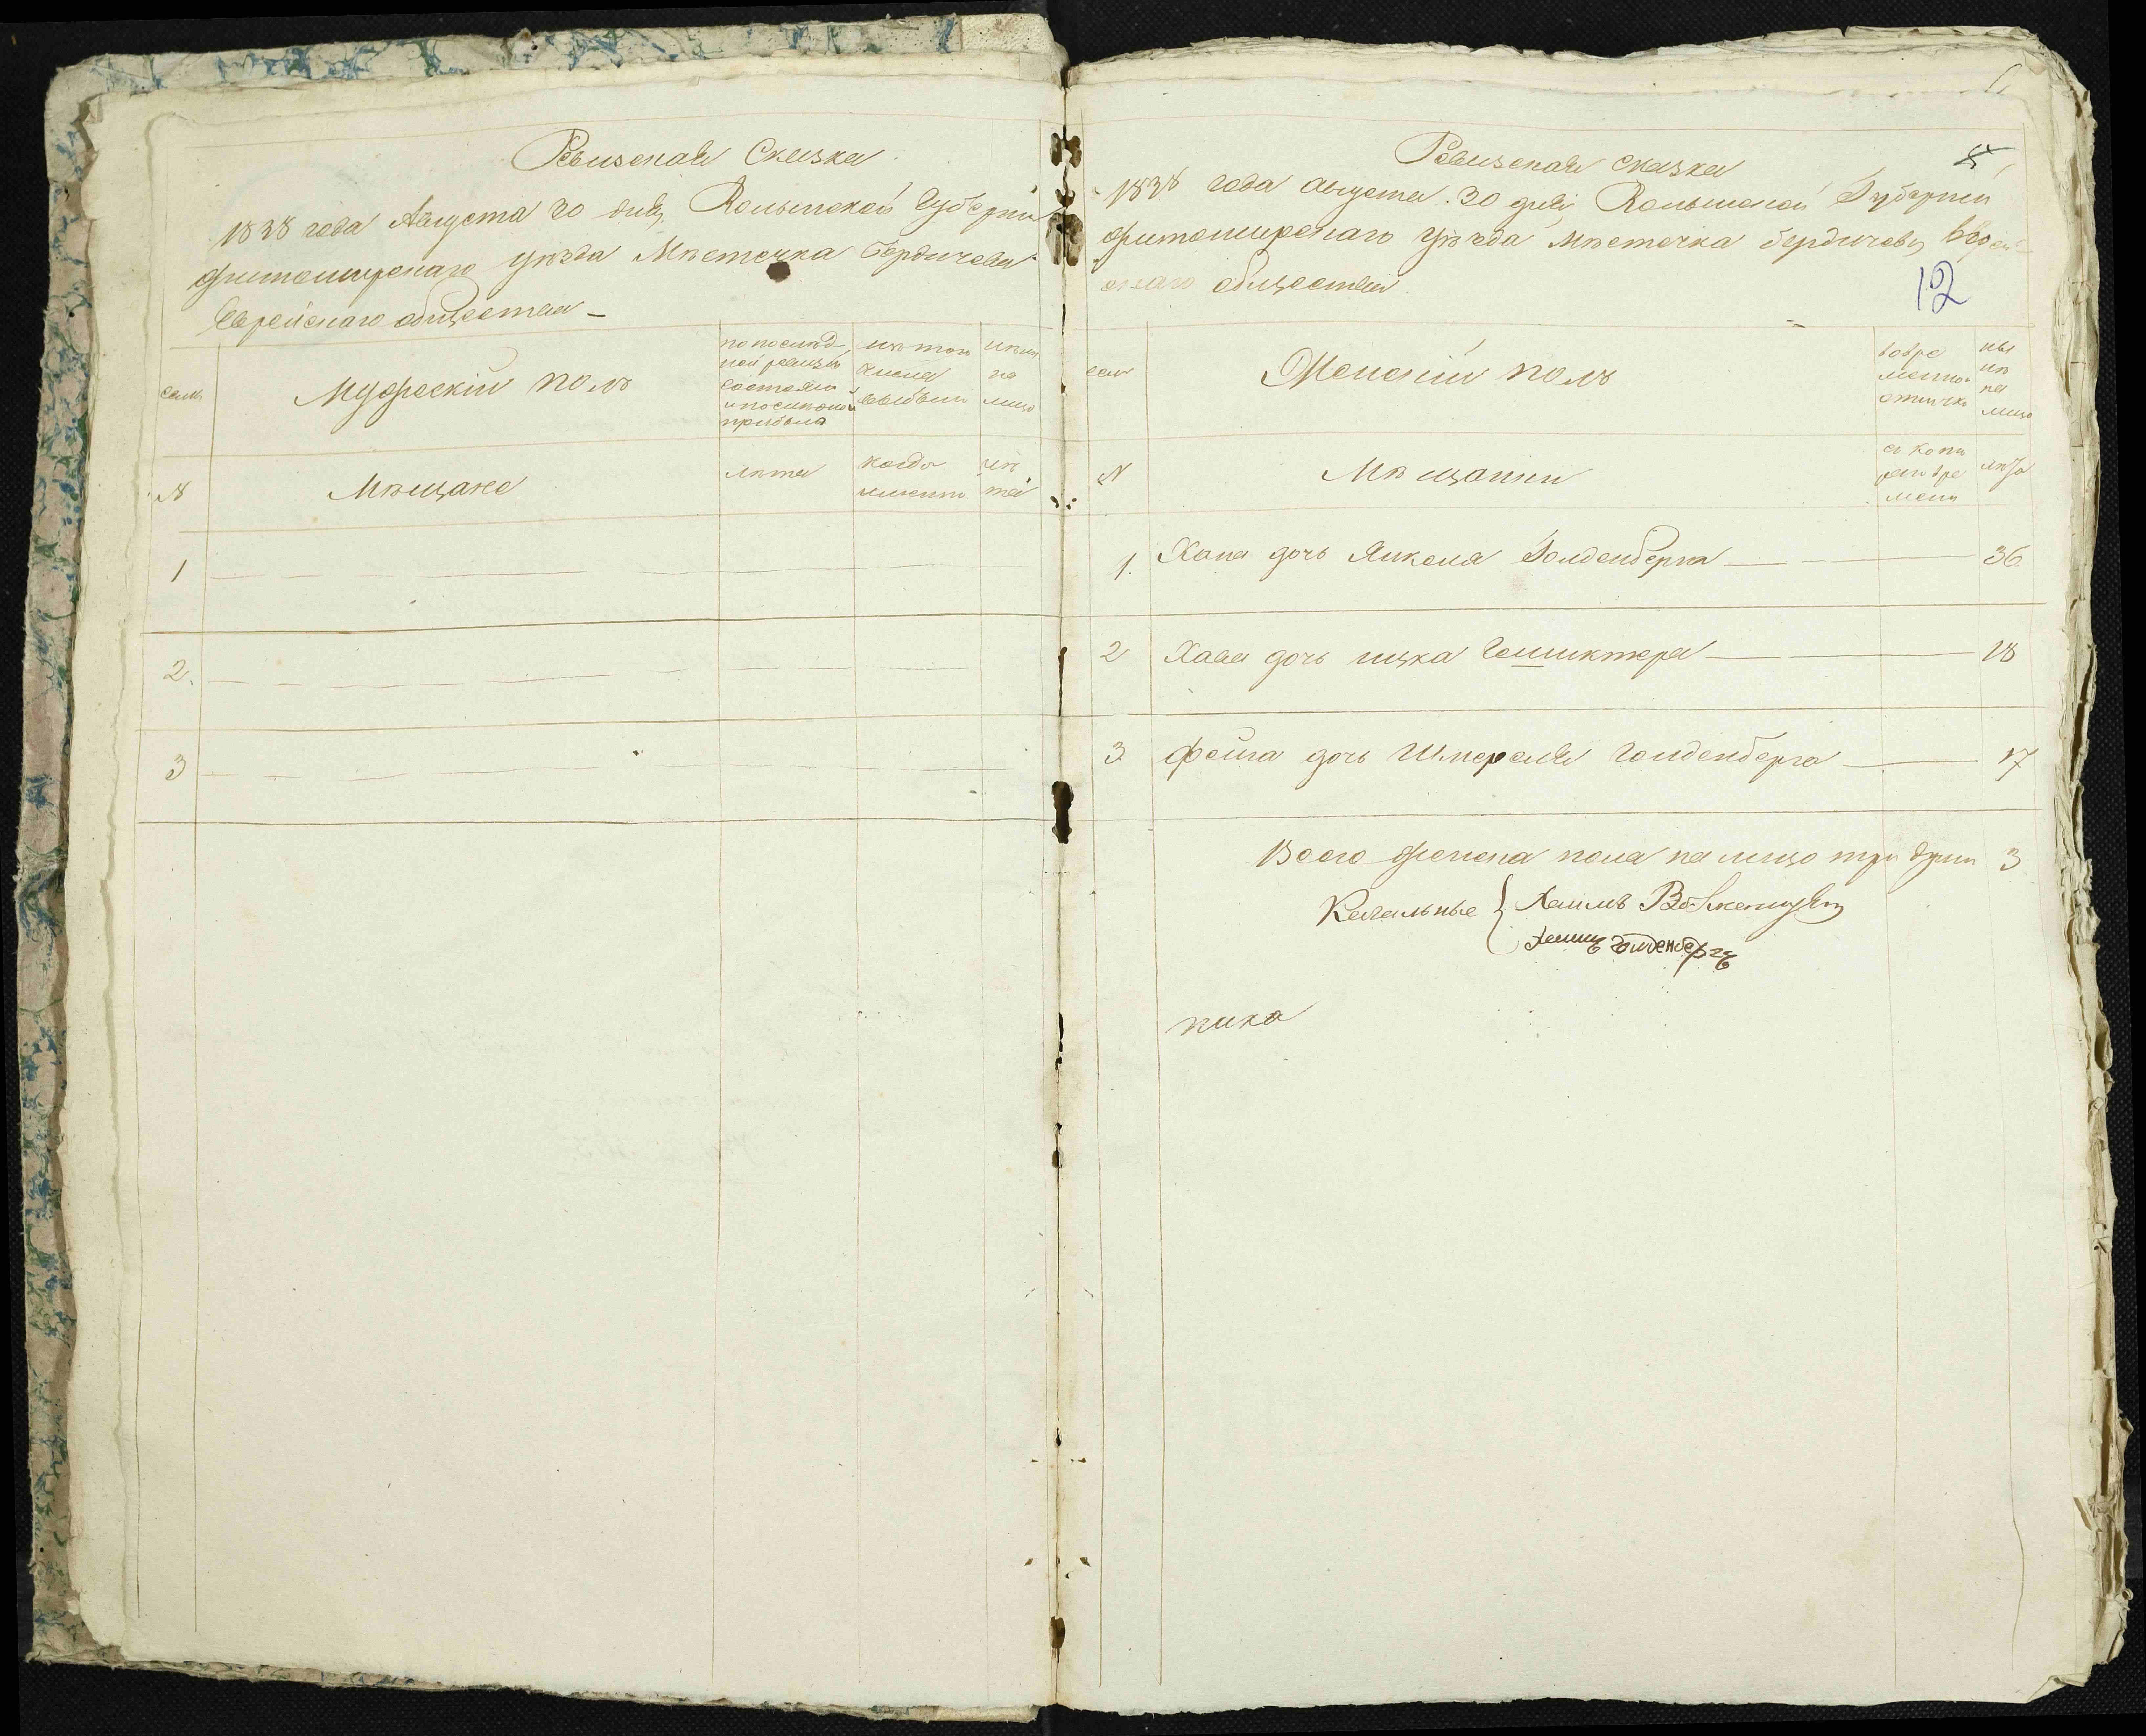 Ревизская Сказка
1838 года Августа 30 дня, Волынской Губернии
Житомирскаго уѣзда Мѣстечка Бердичева
Еврейскаго общества
семь
Мужескій полъ
по послѣд
ней ревизіи
состояло
и после оной
прибыло
изъ того
числа
выбыли
нынѣ
на
лицо
№
Мѣщане
лѣта
когда
именно
лѣ
та
1
2.
3
Ревизская сказка
1838 года августа 30 дня, Волынской Губернии
Житомирскаго уѣзда мѣстечка Бердичева, Еврей
скаго общества
12
сем
Женскій полъ
во вре
менной
отлучке
ны
нѣ
на
лицо
№
Мѣщанки
съ кото
раго вре
мени
лѣта
1. Хана дочь Янкеля Голденберга 36
2 Хава дочь ицка 18
3 Фейга дочь Шмереля Голденберга 17
Всего женска пола на лицо три души 3
Кагальные
Хаимъ
Голденбергъ